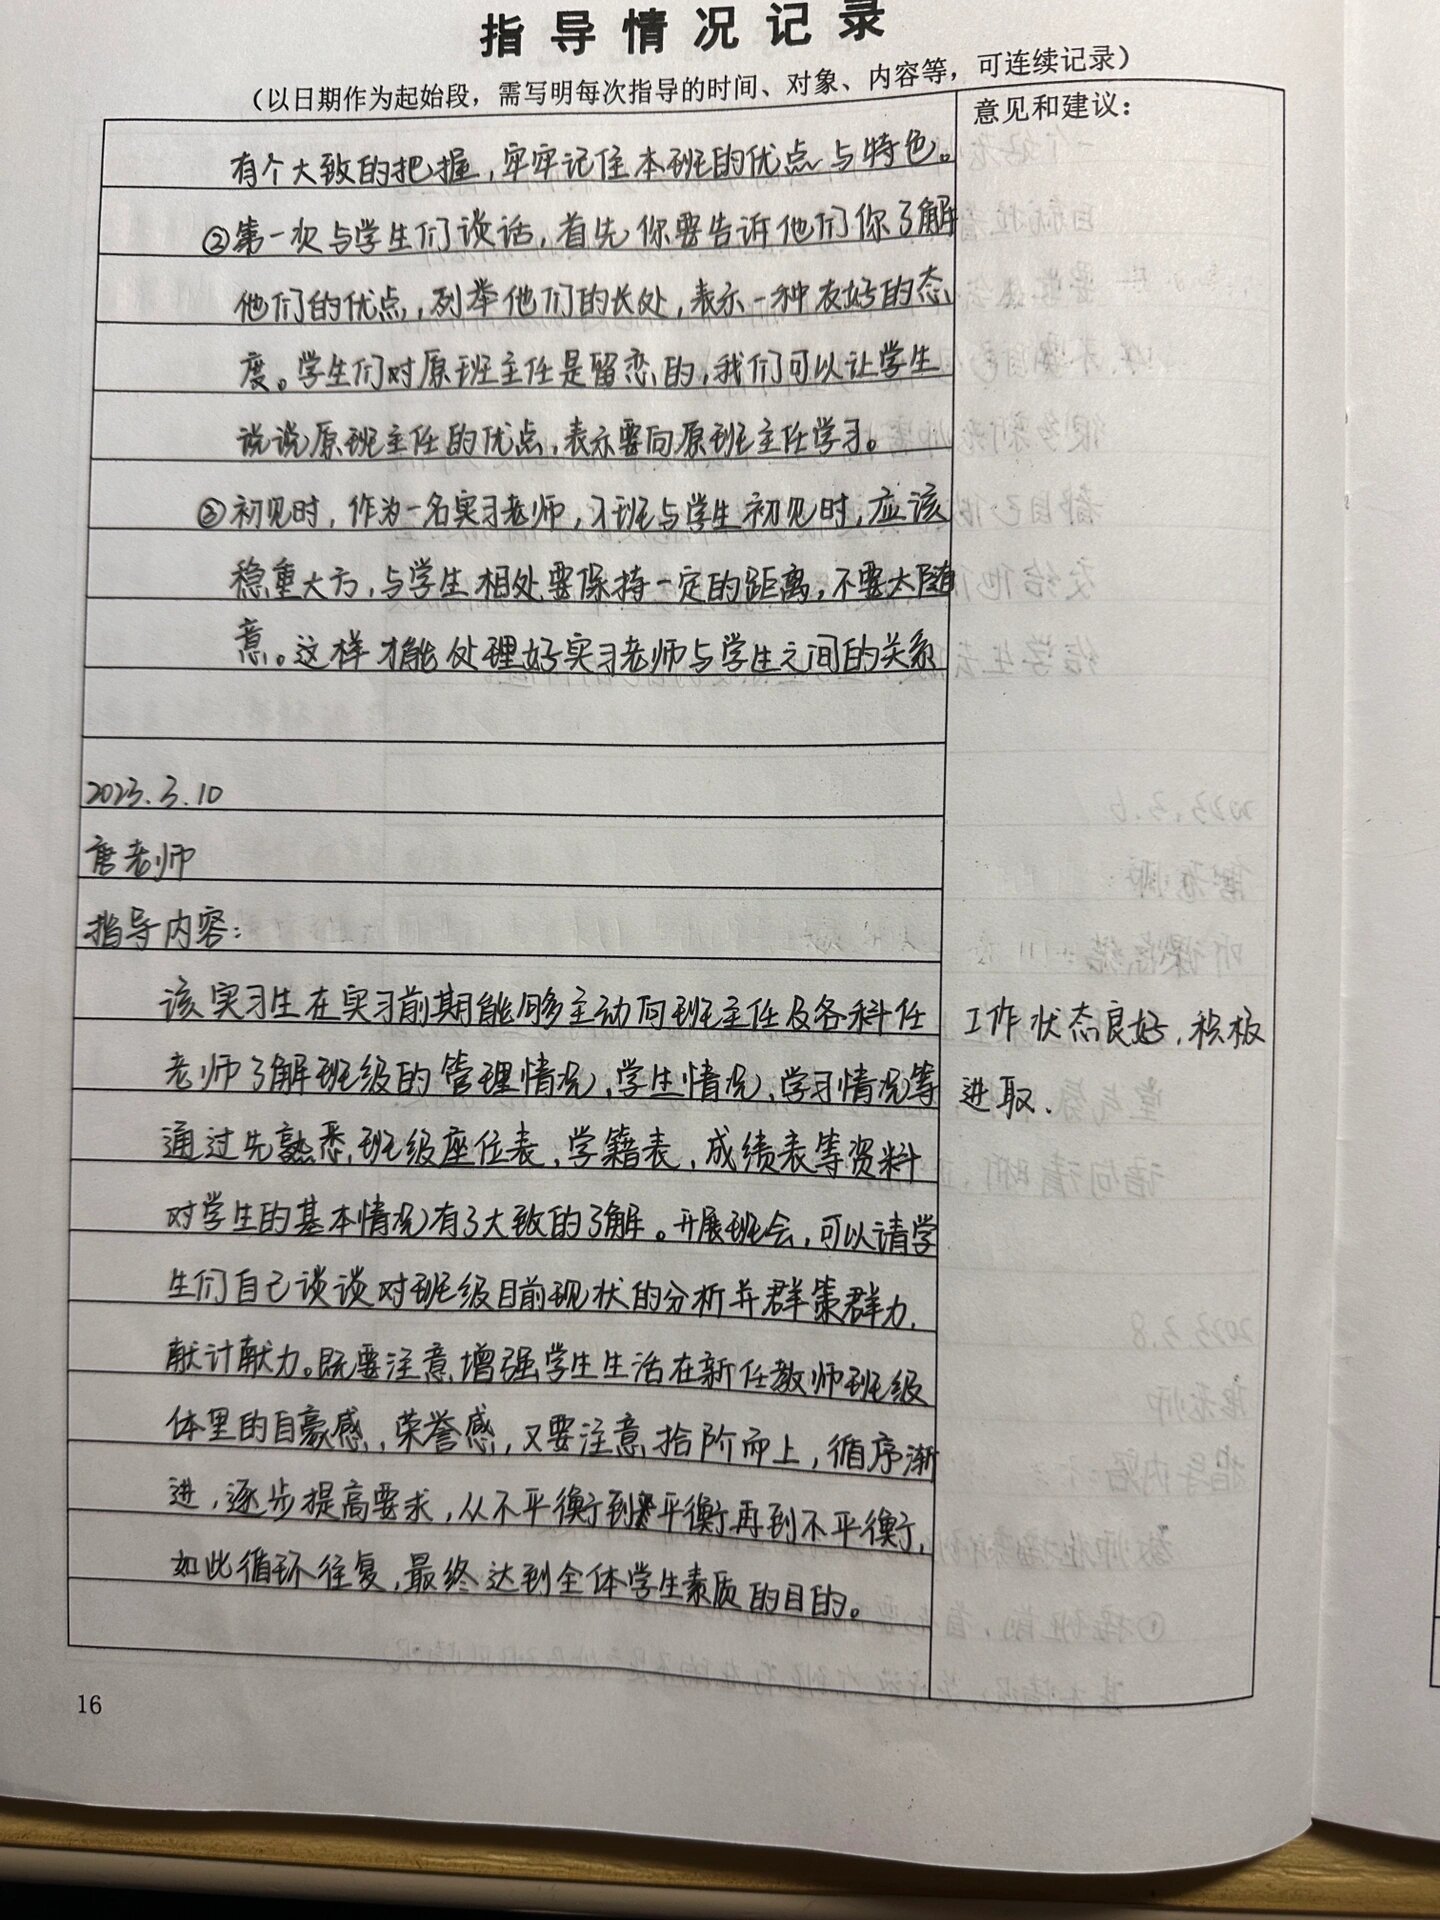 指导情况记录
（以日期作为起始段，需写明每次指导的时间、对象、内容等，可连续记录）
意见和建议：
有个大致的把握，牢牢记住本班的优点与特色。
②第一次与学生们谈话，首先你要告诉他们你了解
他们的优点，列举他们的长处，表示一种友好的态
度。学生们对原班主任是留恋的，我们可以让学生
说说原班主任的优点，表示要向原班主任学习。
③初见时，作为一名实习老师，习班与学生初见时，应该
稳重大方，与学生相处要保持一定的距离，不要太随
意。这样才能处理好实习老师与学生之间的关系
2023.3.10
唐老师
指导内容：
该实习生在实习前期能够主动向班主任及各科任
老师了解班级的管理情况、学生情况、学习情况等
通过先熟悉班级座位表、学籍表、成绩表等资料
对学生的基本情况有了大致的了解。开展班会，可以请学
生们自己谈谈对班级目前现状的分析并群策群力，
献计献力。既要注意增强学生生活在新任教师班级
体里的自豪感、荣誉感，又要注意拾阶而上，循序渐
进，逐步提高要求，从不平衡到平衡再到不平衡，
如此循环往复，最终达到全体学生素质的目的。
工作状态良好，积极
进取．
16